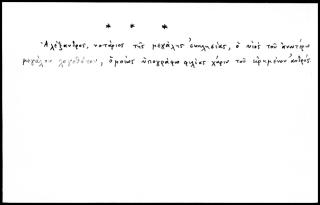 * * *
Ἀλέξανδρος, νοτάριος τῆς μεγάλης ἐκκλησίας, ὁ υἱὸς τοῦ ἀνωτέρω
μεγάλου λογοθέτου, ὁμοίως ὑπογράφω φιλίας χάριν τοῦ εἰρημένου ἀνδρός.